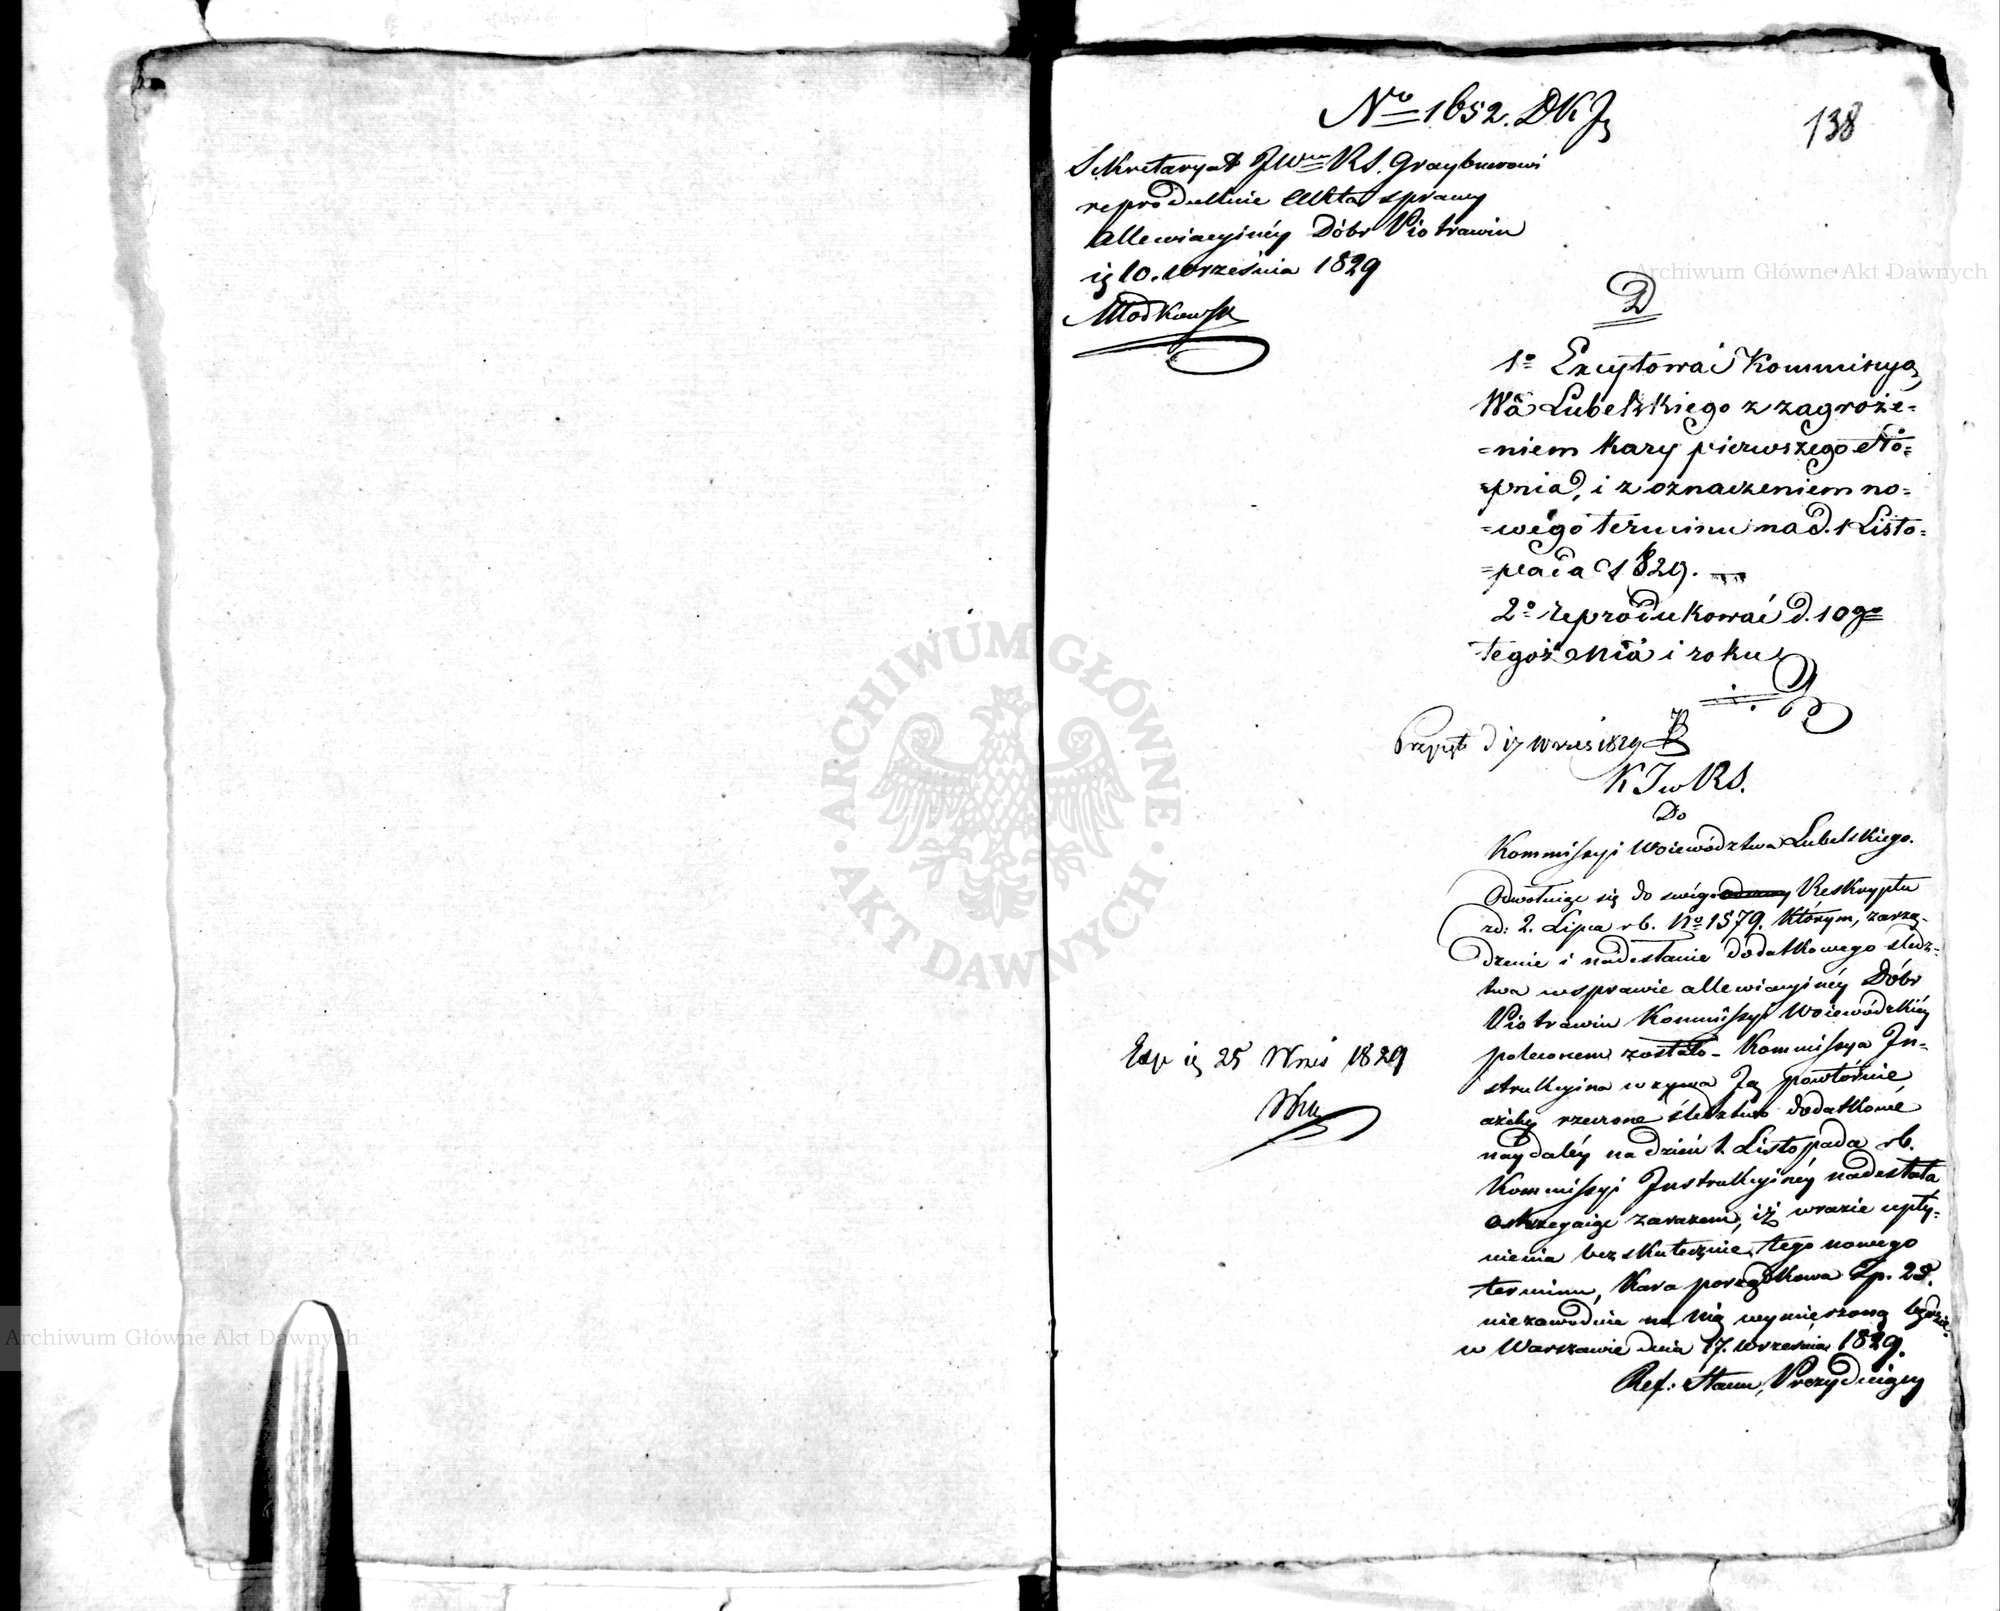 No 1652. DKJ
138
Sekretaryat JWu RS. Grayberowi
reprodukuie Akta sprawy
allewiacyinéy Dóbr Piotrawin
ię 10. września 1829
Młodkowski
D
1o Excytować Kommissyą
Wa Lubelskiego z zagroże=
=niem kary pierwszego Sto=
=pnia, i z oznaczeniem no=
=wego terminu na d. 1 Listo=
=pada 1829.
2o reprodukować d. 10go
tegoż Mca i roku
Przyięto d 17 Wrzes 1829
K J w RS.
Do
Kommissyi Woiewództwa Lubelskiego.
Odwołuiąc się do swégo Reskryptu
zd: 2. Lipca rb. No 1579. którym, zarzą-
dzenie i nadesłanie dodatkowego śledz-
twa wsprawie allewiacyinéy Dóbr
Piotrawin Kommissyi Woiewódzkiéy
poleconem zostało - Kommissya In-
strukcyina wzywa Ją powtórnie,
ażeby rzeczone śledztwo dodatkowé
naydaléy na dzień 1. Listopada rb.
Kommissyi Instrukcyinéy nadesłała
ostrzegaiąc zarazem, iż wrazie upły-
nienia bezskutecznie tego nowego
terminu, kara porządkowa Zp. 25.
niezawodnie na Nią wymierzoną będzie
w Warszawie dnia 17. września 1829.
Ref: Stanu, Prezyduiący
Exp ię 25 Wrześ 1829
Archiwum Główne Akt Dawnych
ARCHIWUM GŁÓWNE
AKT DAWNYCH
Archiwum Główne Akt Dawnych